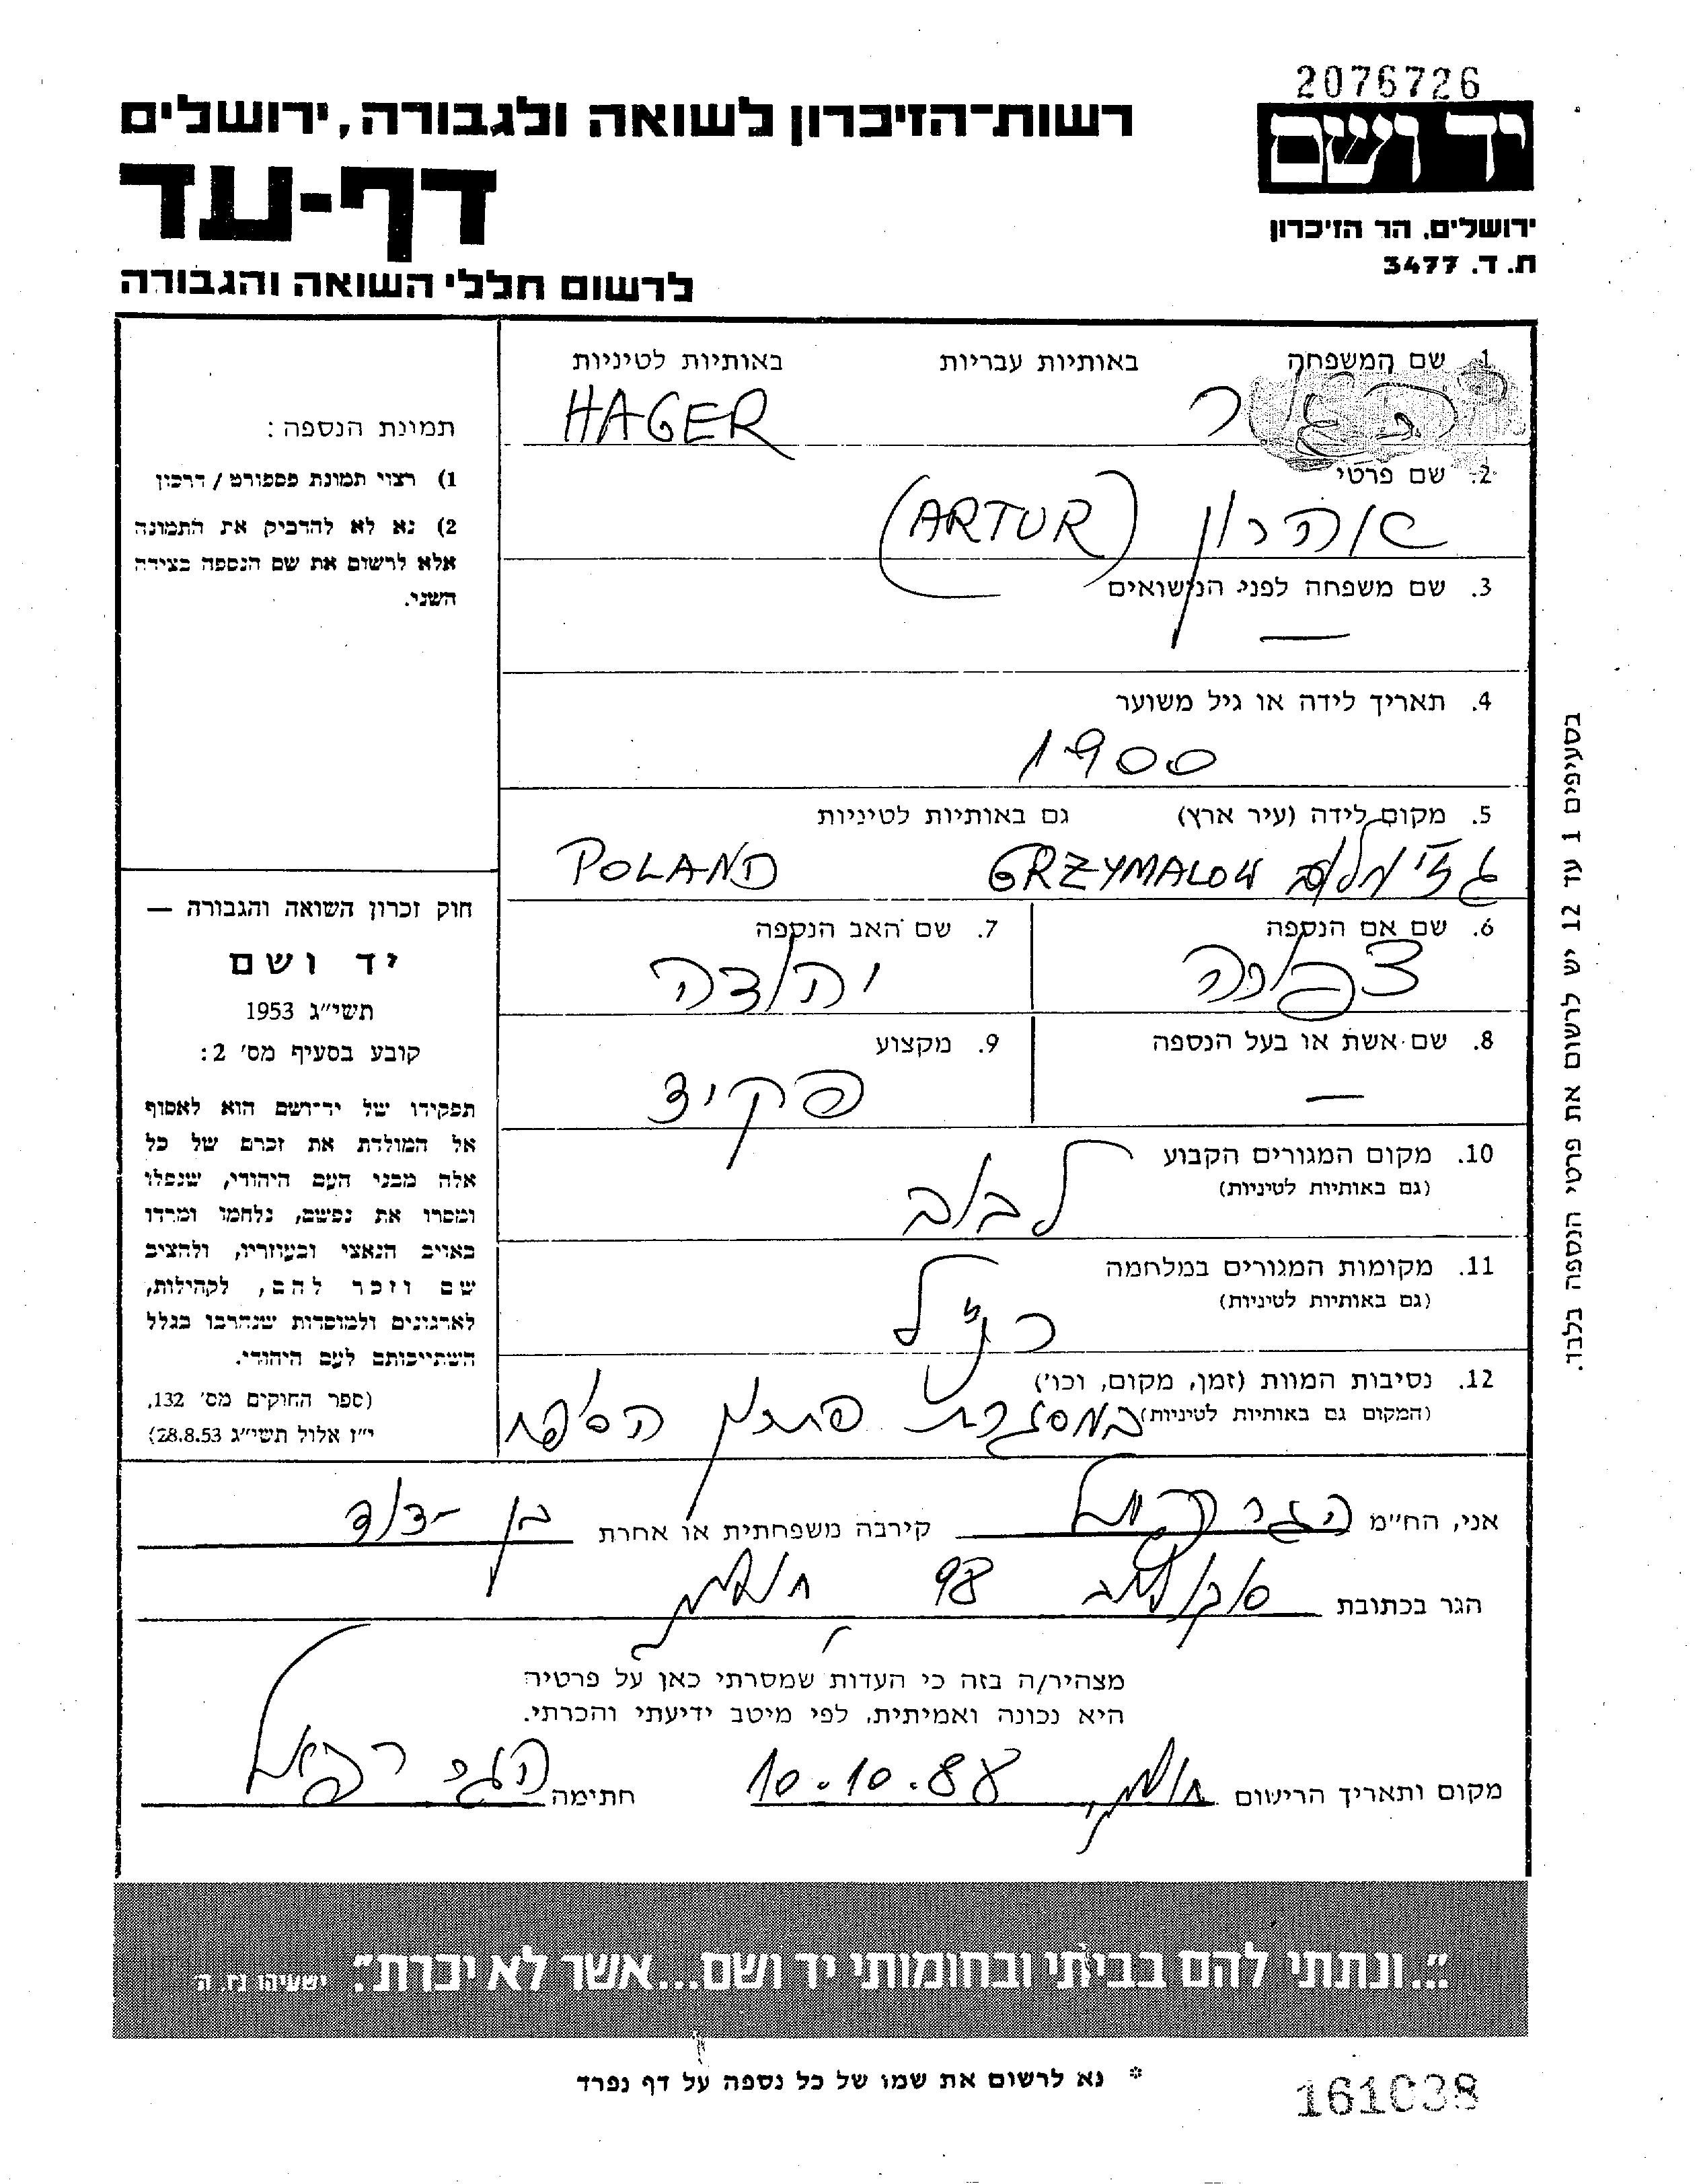 2076726
יד ושם
ירושלים, הר הזיכרון
ת. ד. 3477
רשות־הזיכרון לשואה ולגבורה, ירושלים
דף-עד
לרשום חללי השואה והגבורה
1. שם המשפחה באותיות עבריות באותיות לטיניות
הגר HAGER
2. שם פרטי
אהרון (ARTUR)
3. שם משפחה לפני הנישואים
—
4. תאריך לידה או גיל משוער
1900
5. מקום לידה (עיר ארץ) גם באותיות לטיניות
GRZYMALOW POLAND
6. שם אם הנספה 7. שם האב הנספה
צפורה יהודה
8. שם אשת או בעל הנספה 9. מקצוע
— פקיד
10. מקום המגורים הקבוע
(גם באותיות לטיניות)
לבוב
11. מקומות המגורים במלחמה
(גם באותיות לטיניות)
כנ"ל
12. נסיבות המוות (זמן, מקום, וכו')
(המקום גם באותיות לטיניות)
במסגרת פתרון הסופי
תמונת הנספה:
1) רצוי תמונת פספורט / דרכון
2) נא לא להדביק את התמונה
אלא לרשום את שם הנספה בצידה
השני.
חוק זכרון השואה והגבורה —
יד ושם
תשי"ג 1953
קובע בסעיף מס' 2:
תפקידו של יד־ושם הוא לאסוף
אל המולדת את זכרם של כל
אלה מבני העם היהודי, שנפלו
ומסרו את נפשם, נלחמו ומרדו
באויב הנאצי ובעוזריו, ולהציב
שם וזכר להם, לקהילות,
לארגונים ולמוסדות שנחרבו בגלל
השתייכותם לעם היהודי.
(ספר החוקים מס' 132,
י"ז אלול תשי"ג 28.8.53)
בסעיפים 1 עד 12 יש לרשום את פרטי הנספה בלבד.
אני, הח"מ הגר רפאל קירבה משפחתית או אחרת בן-דוד
הגר בכתובת סוקולוב 98 חולון
מצהיר/ה בזה כי העדות שמסרתי כאן על פרטיה
היא נכונה ואמיתית, לפי מיטב ידיעתי והכרתי.
מקום ותאריך הרישום חולון, 10.10.88 חתימה הגר רפאל
"...ונתתי להם בביתי ובחומותי יד ושם...אשר לא יכרת". ישעיהו נו, ה
* נא לרשום את שמו של כל נספה על דף נפרד
161038